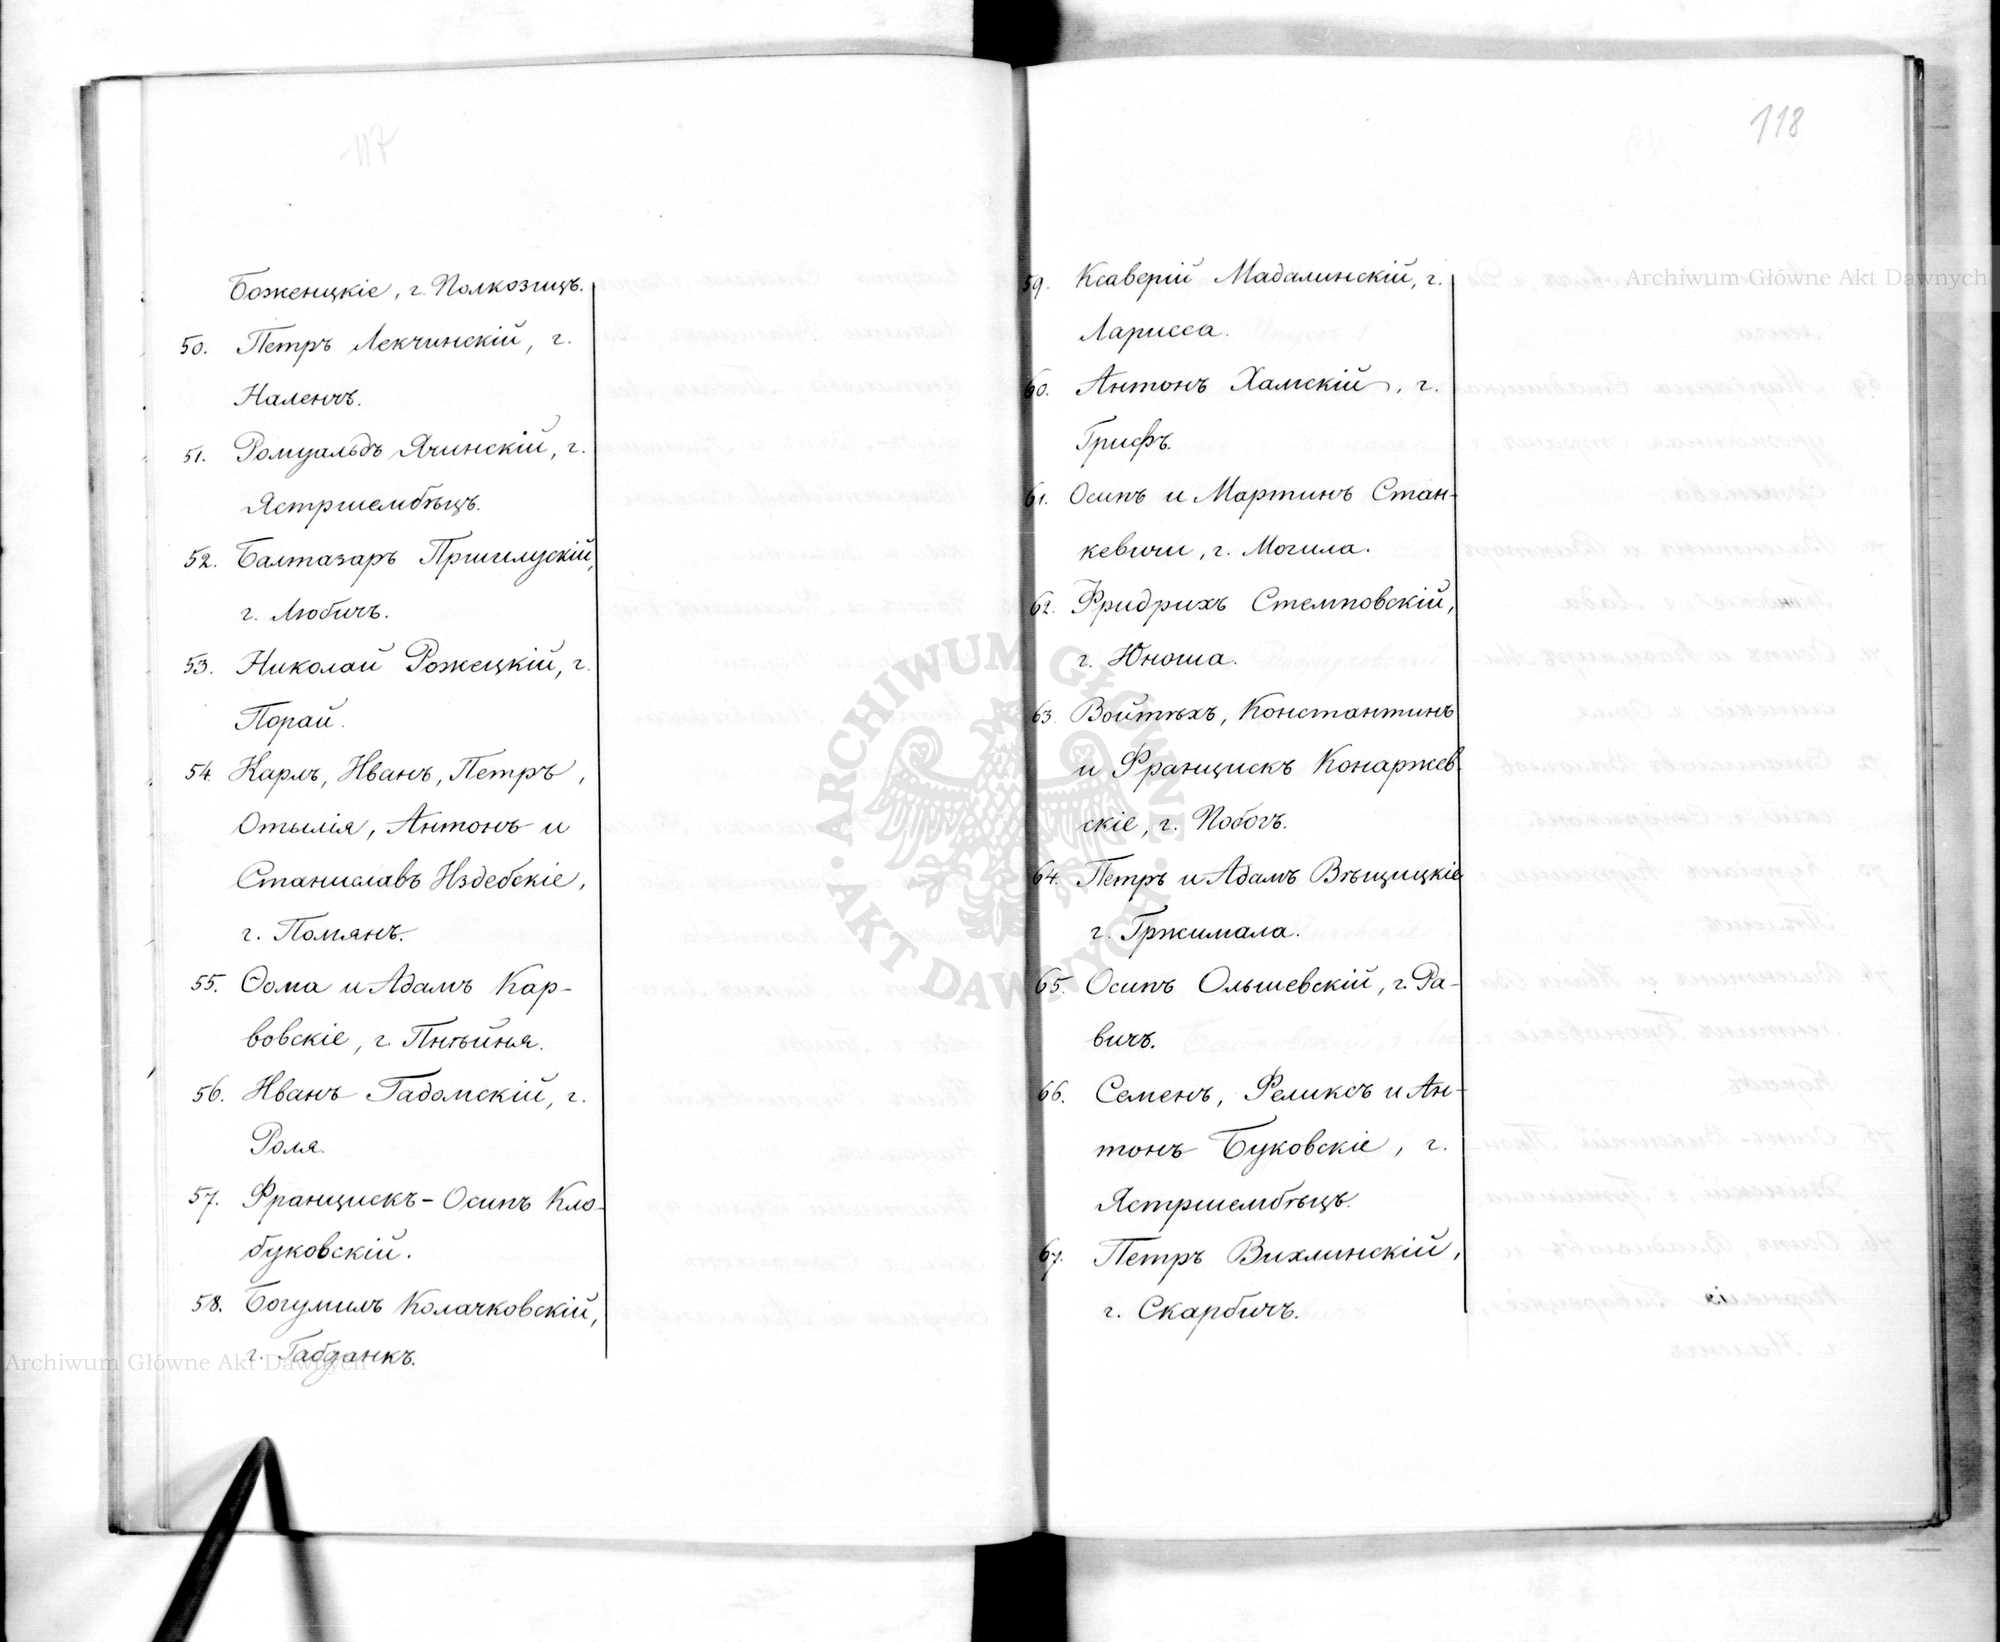 117
Боженцкіе, г. Полкозицъ.
50. Петръ Лекчинскій, г.
Наленчъ.
51. Ромуальдъ Ячинскій, г.
Ястршембѣцъ.
52. Балтазаръ Пршилускій,
г. Любичъ.
53. Николай Рожецкій, г.
Порай.
54 Карлъ, Иванъ, Петръ,
Отылія, Антонъ и
Станиславъ Издебскіе,
г. Помянъ.
55. Ѳома и Адамъ Кар-
вовскіе, г. Пнѣйня.
56. Иванъ Гадомскій, г.
Роля.
57. Францискъ-Осипъ Кло-
буковскій.
58. Богумилъ Колачковскій,
г. Габданкъ.
118
59. Ксаверій Мадалинскій, г.
Ларисса.
60. Антонъ Хамскій, г.
Грифъ.
61. Осипъ и Мартинъ Стан-
кевичи, г. Могила.
62. Фридрихъ Стемповскій,
г. Юноша.
63. Войтѣхъ, Константинъ
и Францискъ Конаржев-
скіе, г. Побогъ.
64. Петръ и Адамъ Вѣщицкіе
г. Гржимала.
65. Осипъ Ольшевскій, г. Ра-
вичъ.
66. Семенъ, Феликсъ и Ан-
тонъ Буковскіе, г.
Ястршембѣцъ.
67. Петръ Вихлинскій,
г. Скарбичъ.
Archiwum Główne Akt Dawnych
Archiwum Główne Akt Dawnych
ARCHIWUM GŁÓWNE
AKT DAWNYCH